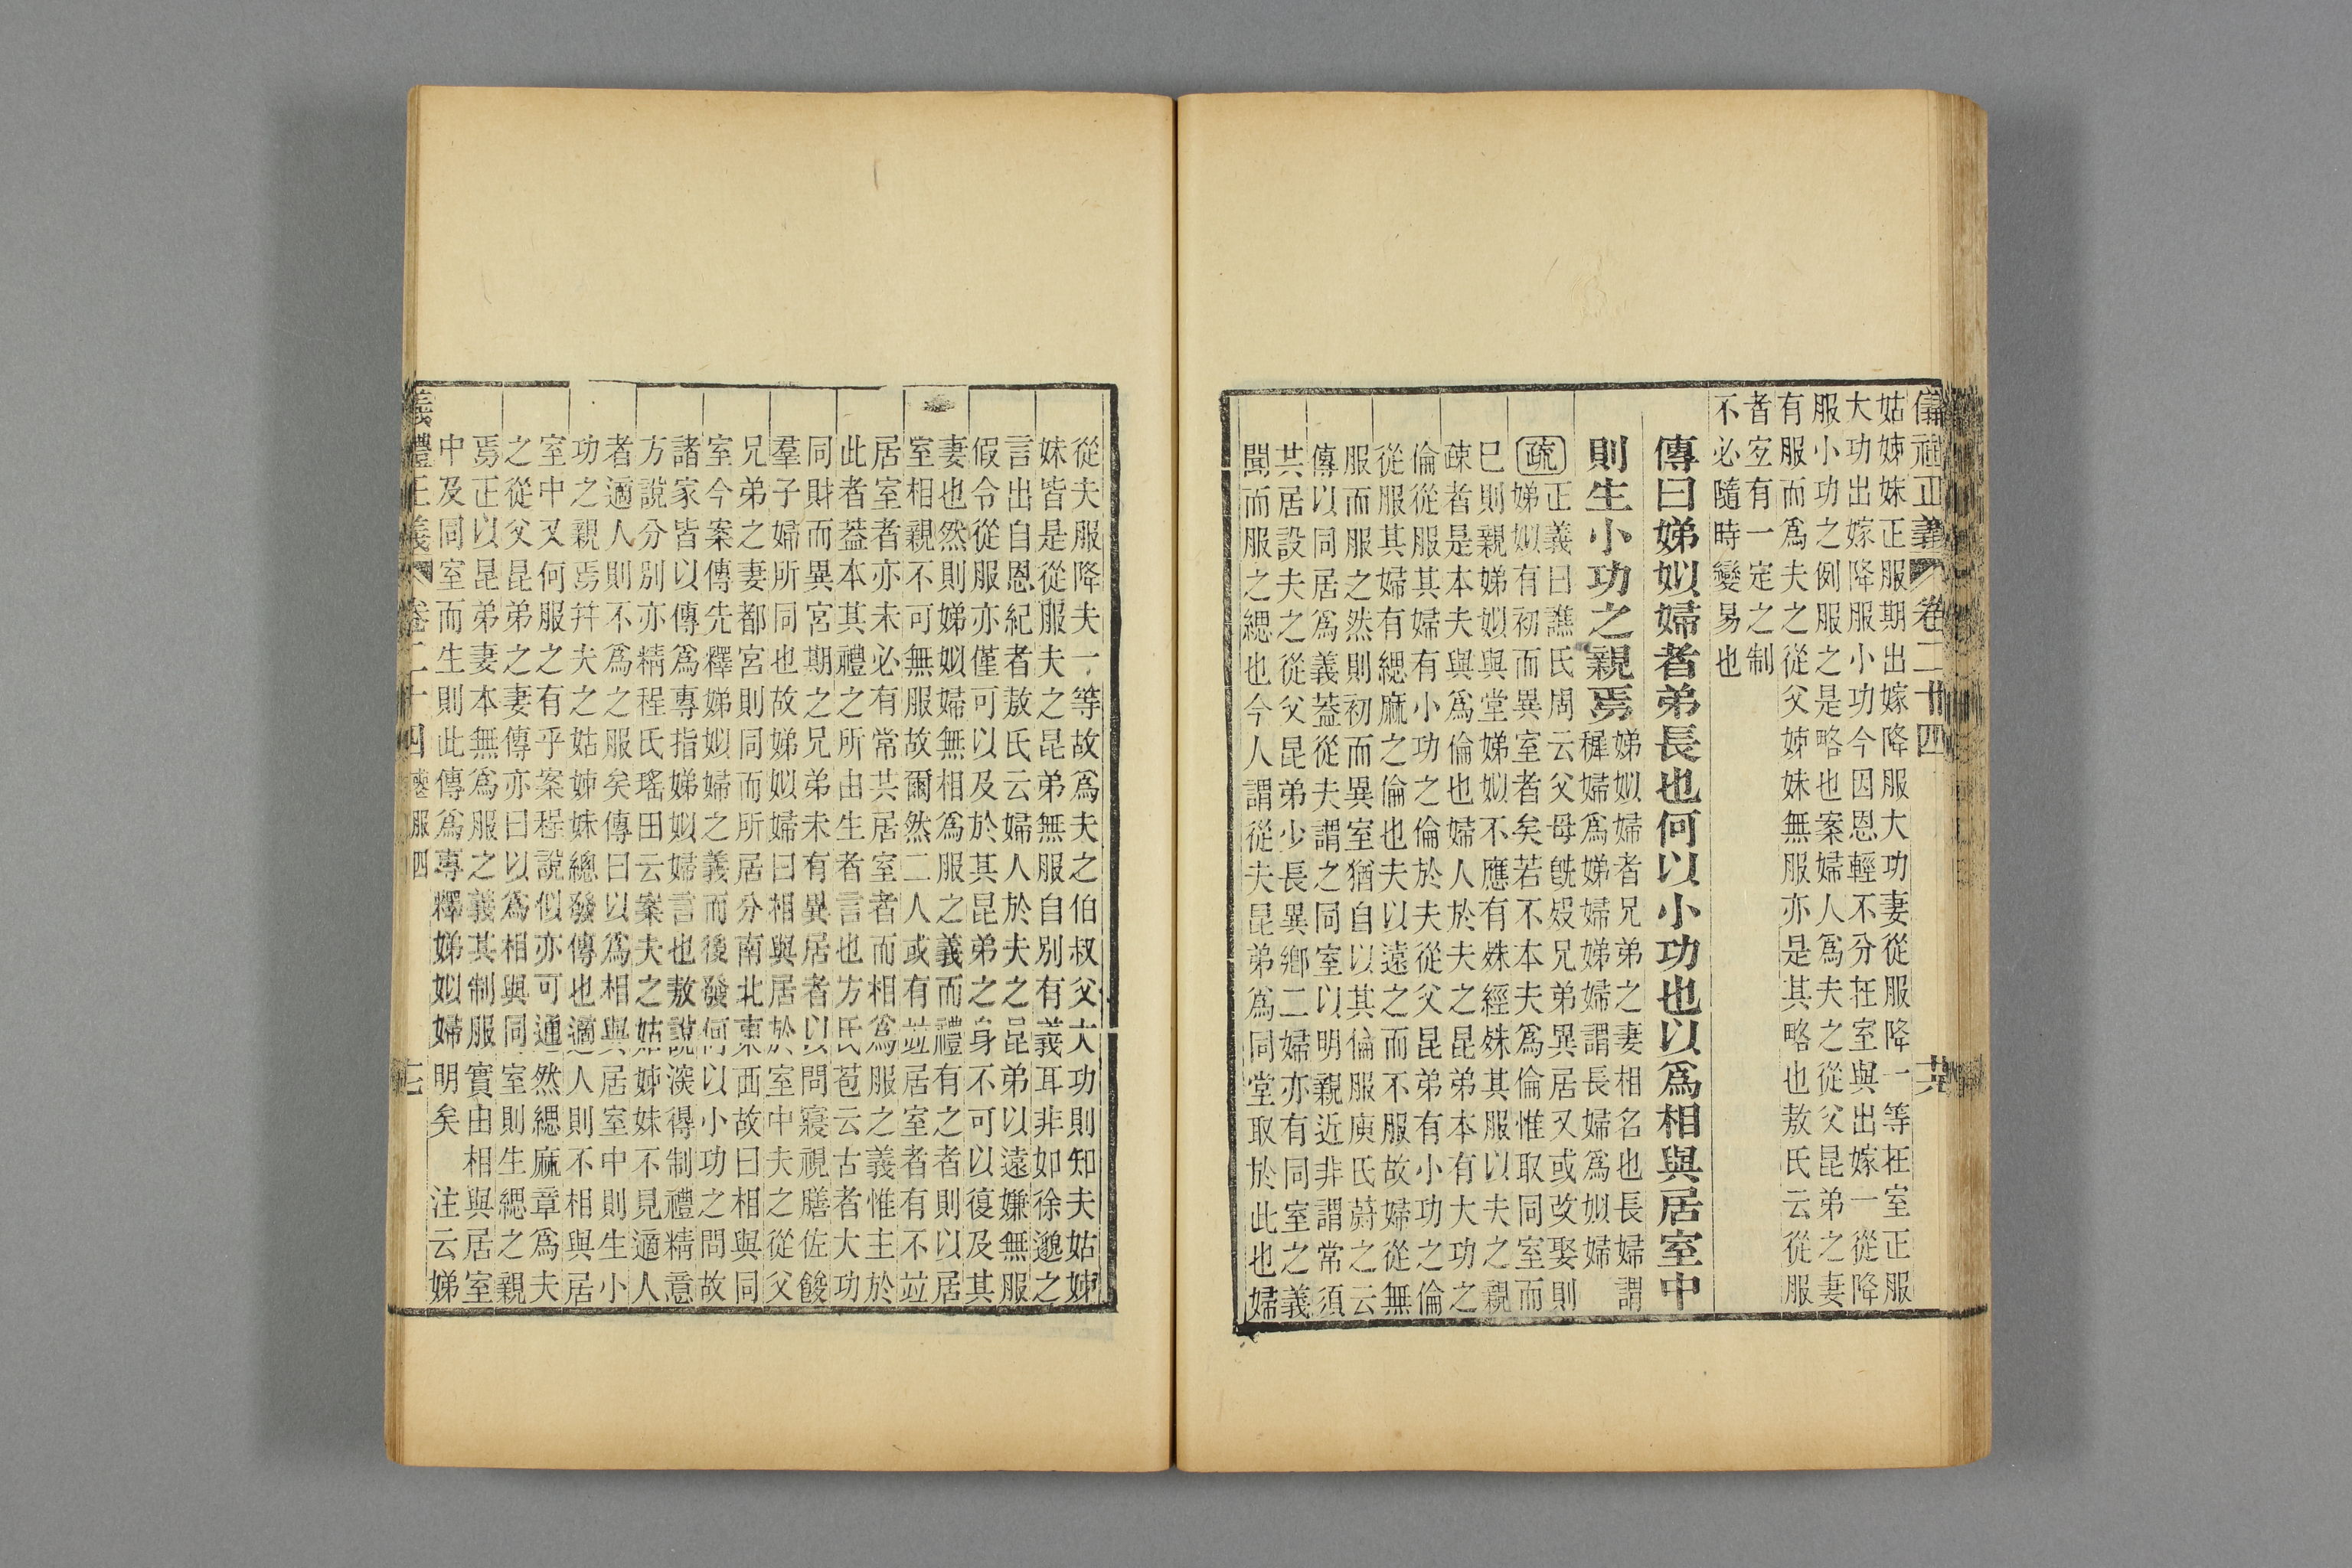 姑姊妹正服期出嫁降服大功妻從服降一等在室正服
大功出嫁降服小功今因恩輕不分在室與出嫁一從降
服小功之例服之是略也案婦人爲夫之從父昆弟之妻
有服而爲夫之從父姊妹無服亦是其略也敖氏云從服
者宐有一定之制
不必隨時變易也
傳曰娣姒婦者弟長也何以小功也以爲相與居室中
則生小功之親焉
娣姒婦者兄弟之妻相名也長婦謂
穉婦爲娣婦娣婦謂長婦爲姒婦
疏
正義曰譙氏周云父母旣歿兄弟異居又或改娶則
娣姒有初而異室者矣若不本夫爲倫惟取同室而
巳則親娣姒與堂娣姒不應有殊經殊其服以夫之親
疎者是本夫與爲倫也婦人於夫之昆弟本有大功之
倫從服其婦有小功之倫於夫從父昆弟有小功之倫
從服其婦有緦麻之倫也夫以遠之而不服故婦從無
服而服之然則初而異室猶自以其倫服庾氏蔚之云
傳以同居爲義葢從夫謂之同室以明親近非謂常須
共居設夫之從父昆弟少長異鄉二婦亦有同室之義
聞而服之緦也今人謂從夫昆弟爲同堂取於此也婦
從夫服降夫一等故爲夫之伯叔父大功則知夫姑姊
妹皆是從服夫之昆弟無服自別有義耳非如徐邈之
言出自恩紀者敖氏云婦人於夫之昆弟以遠嫌無服
假令從服亦僅可以及於其昆弟之身不可以復及其
妻也然則娣姒婦無相爲服之義而禮有之者則以居
室相親不可無服故爾然二人或有竝居室者有不竝
居室者亦未必有常共居室者而相爲服之義惟主於
此者葢本其禮之所由生者言也方氏苞云古者大功
同財而異宮期之兄弟未有異居者以問寢視膳佐餕
羣子婦所同也故娣姒婦曰相與居於室中夫之從父
兄弟之妻都宮則同而所居分南北東西故曰相與同
室今案傳先釋娣姒婦之義而後發何以小功之問故
諸家皆以傳爲專指娣姒婦言也敖說深得制禮精意
方說分別亦精程氏瑤田云案夫之姑姊妹不見適人
者適人則不爲之服矣傳曰以爲相與居室中則生小
功之親焉幷夫之姑姊妹總發傳也適人則不相與居
室中又何服之有乎案程說似亦可通然緦麻章爲夫
之從父昆弟之妻傳亦曰以爲相與同室則生緦之親
焉正以昆弟妻本無爲服之義其制服實由相與居室
中及同室而生則此傳爲專釋娣姒婦明矣　注云娣